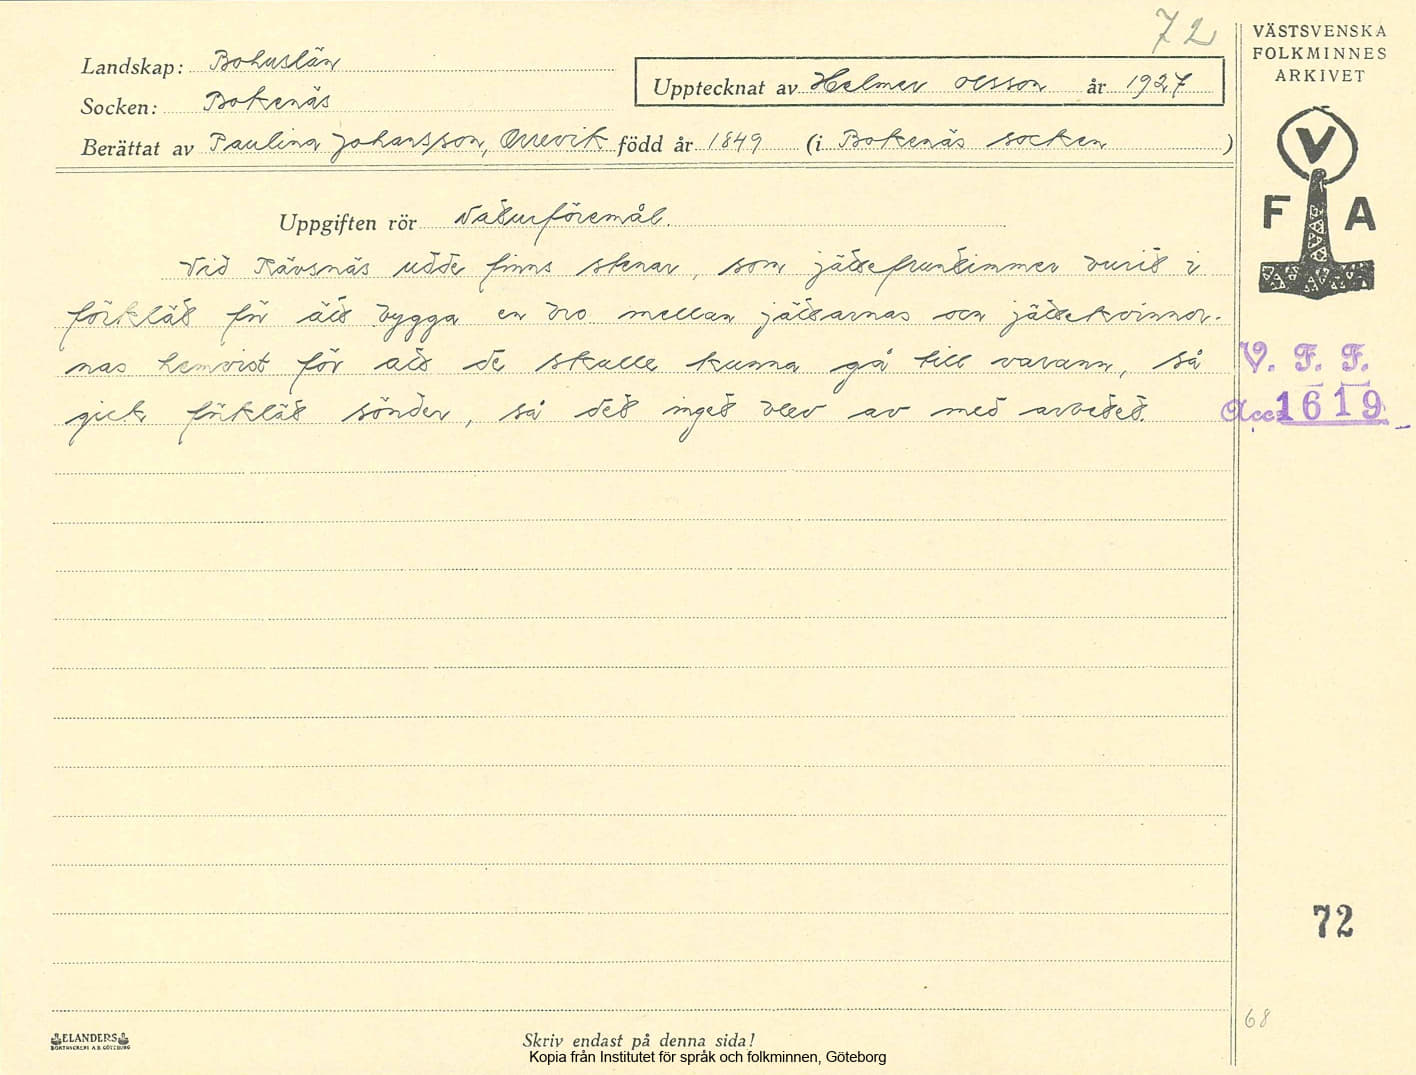 72
VÄSTSVENSKA
FOLKMINNES
ARKIVET
Landskap: Bohuslän
Socken: Bokenäs
Upptecknat av Helmer Olsson år 1927
Berättat av Paulina Johansson, Orrevik född år 1849 (i Bokenäs socken)
V
F A
Uppgiften rör Naturföremål.
Vid Rävsnäs udde finns stenar, som jättefruntimmer burit i
förkläd för att bygga en bro mellan jättarnas och jättekvinnor-
nas hemvist för att de skulle kunna gå till varann, så
gick förkläd sönder, så det inget blev av med arbetet.
V. F. F.
Acc. 1619
72
68
ELANDERS
BOKTRYCKERI A.B. GÖTEBORG
Skriv endast på denna sida!
Kopia från Institutet för språk och folkminnen, Göteborg